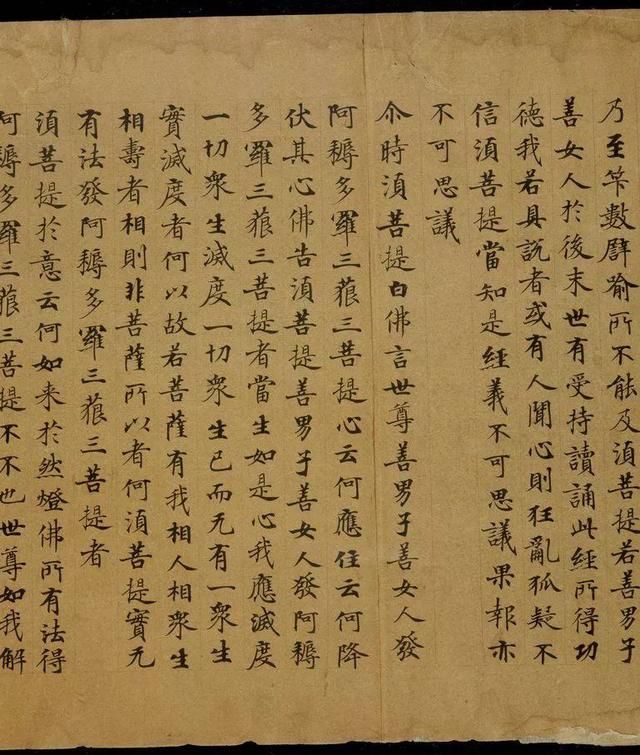 乃至筭數譬喻所不能及須菩提若善男子
善女人於後末世有受持讀誦此經所得功
德我若具說者或有人聞心則狂亂狐疑不
信須菩提當知是經義不可思議果報亦
不可思議
尒時須菩提白佛言世尊善男子善女人發
阿耨多羅三藐三菩提心云何應住云何降
伏其心佛告須菩提善男子善女人發阿耨
多羅三藐三菩提者當生如是心我應滅度
一切眾生滅度一切眾生已而无有一眾生
實滅度者何以故若菩薩有我相人相眾生
相壽者相則非菩薩所以者何須菩提實无
有法發阿耨多羅三藐三菩提者
須菩提於意云何如来於然燈佛所有法得
阿耨多羅三藐三菩提不不也世尊如我解